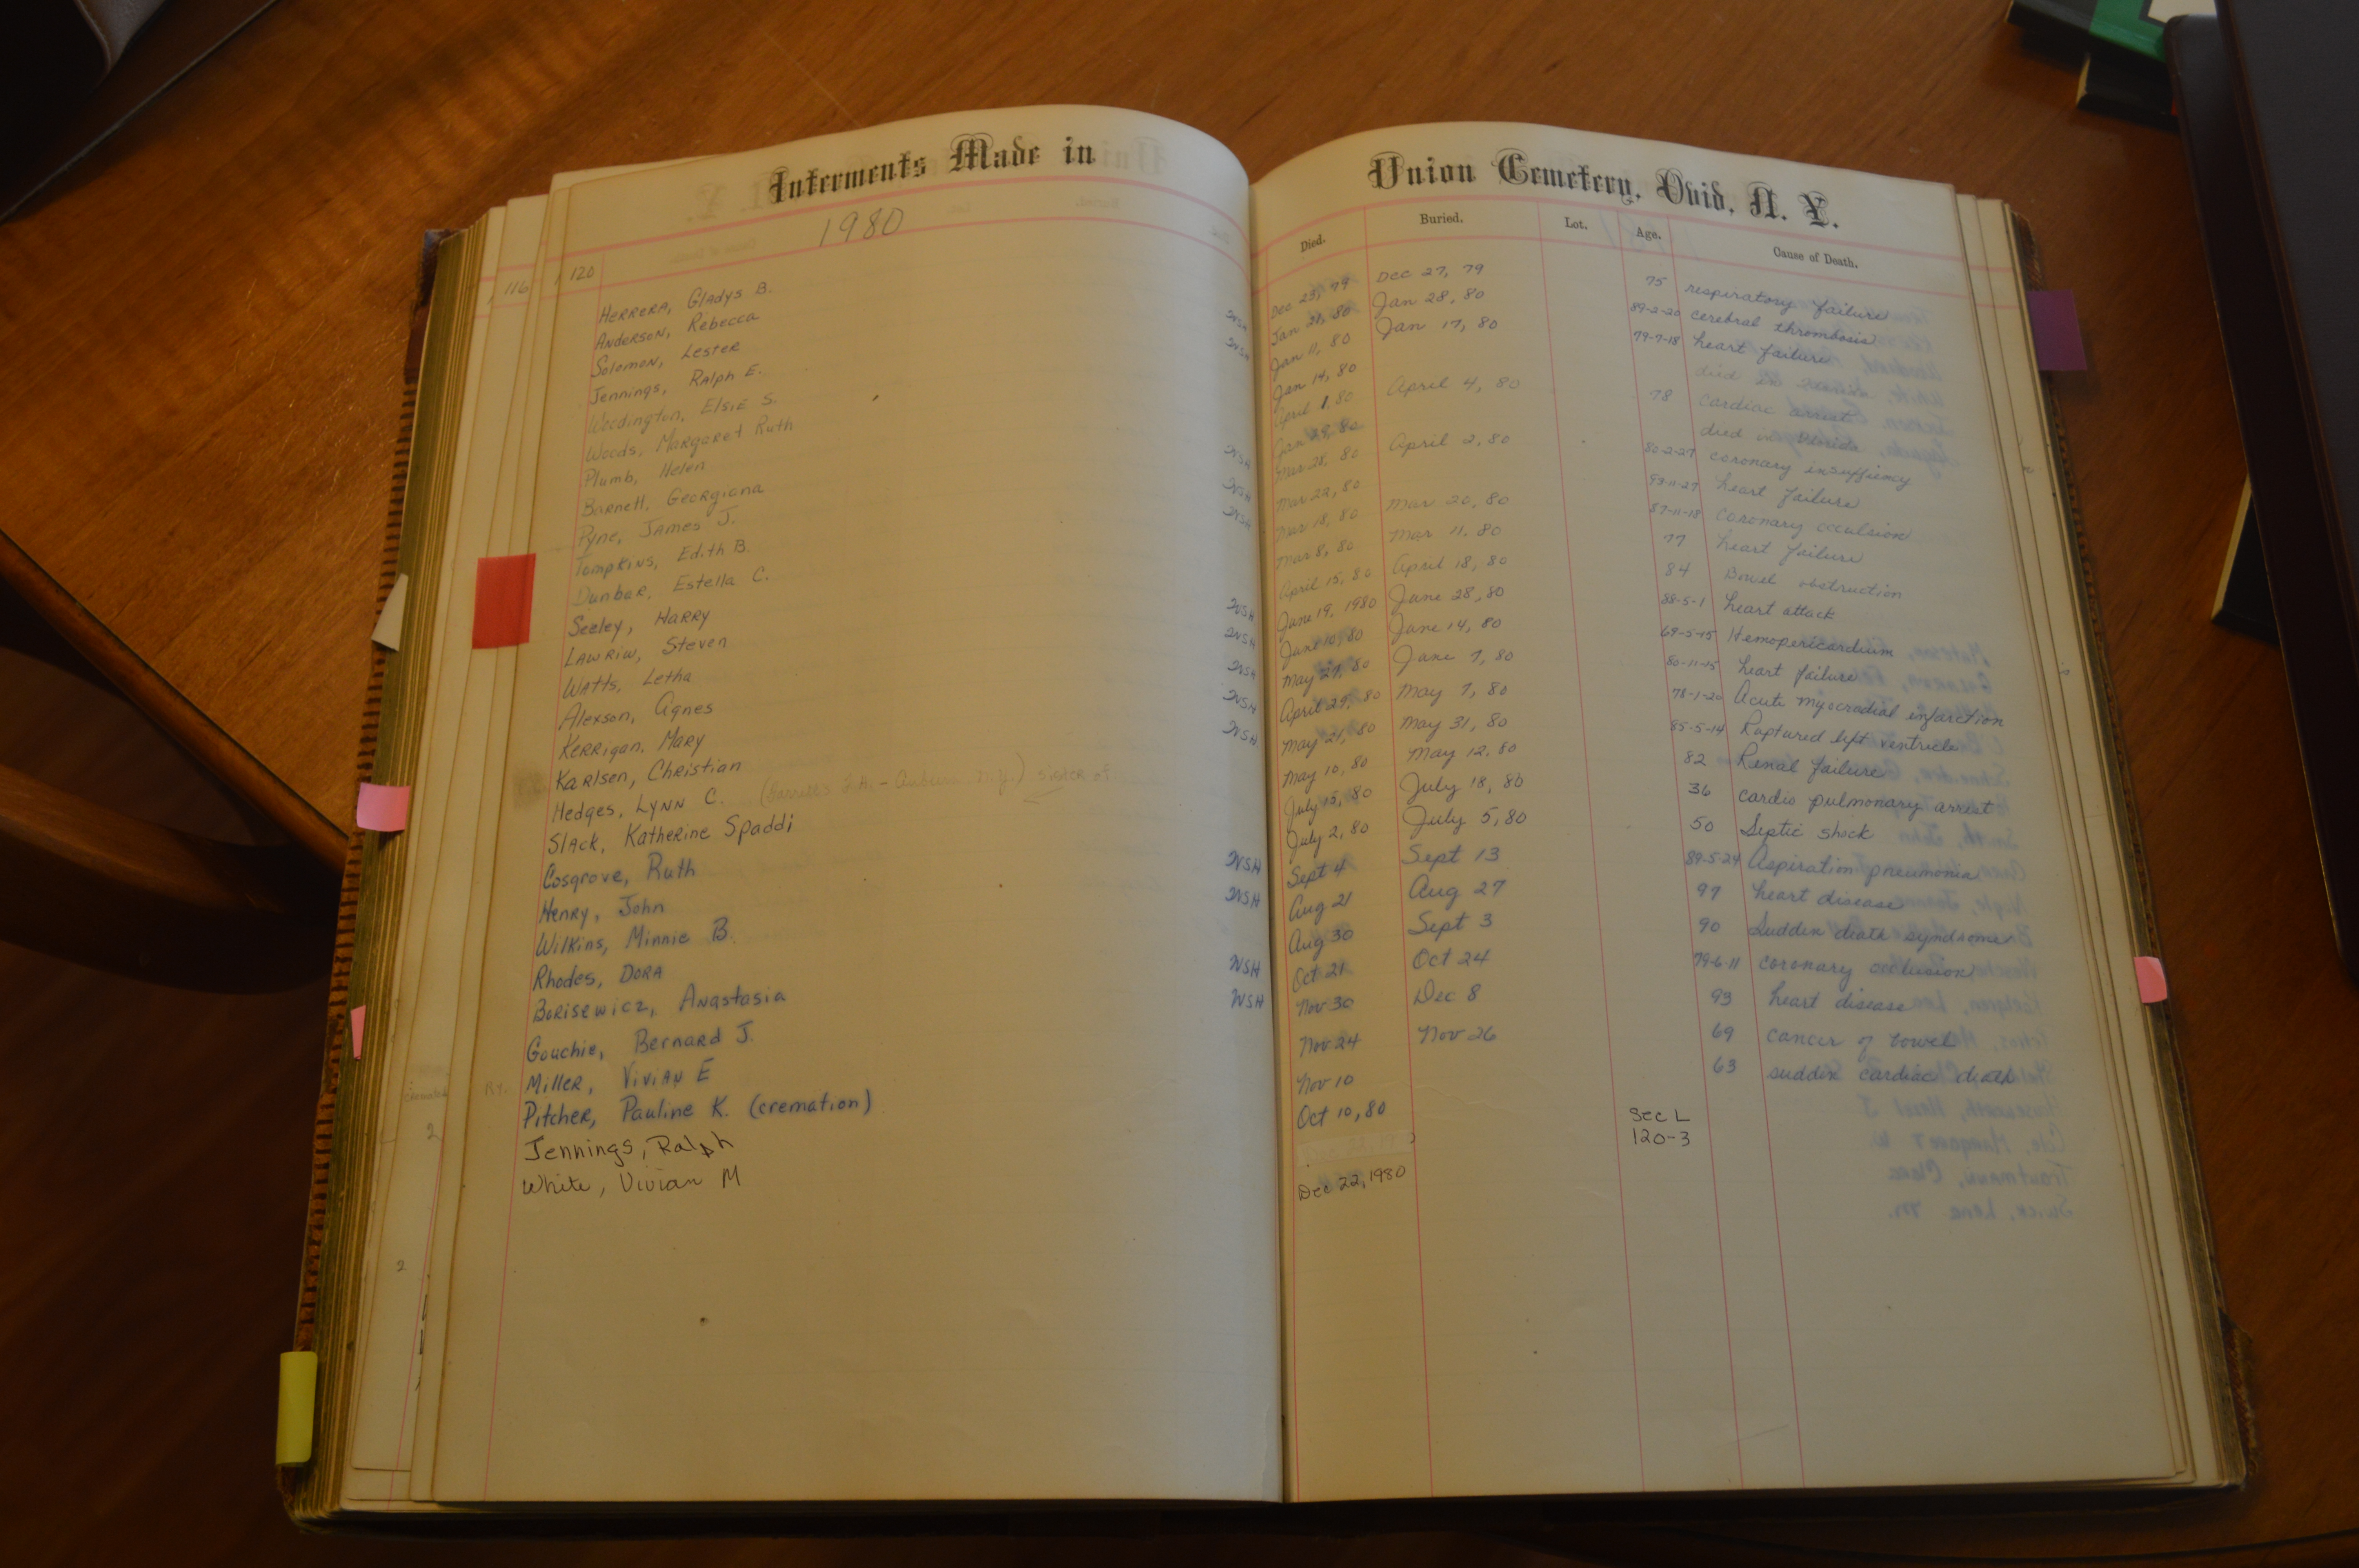 Interments Made in
1980
116
120
Herrera, Gladys B.
Anderson, Rebecca WSH
Solomon, Lester WSH
Jennings, Ralph E.
Woodington, Elsie S.
Woods, Margaret Ruth
Plumb, Helen WSH
Barnett, Georgiana WSH
Pyne, James J. WSH
Tompkins, Edith B.
Dunbar, Estella C.
Seeley, Harry WSH
Lawriw, Steven WSH
Watts, Letha WSH
Alexson, Agnes WSH
Kerrigan, Mary WSH
Karlsen, Christian
Hedges, Lynn C. (Farrell's F.H. - Auburn N.Y.) sister of
Slack, Katherine Spaddi
Cosgrove, Ruth WSH
Henry, John WSH
Wilkins, Minnie B.
Rhodes, Dora WSH
Borisewicz, Anastasia WSH
Gouchie, Bernard J.
Miller, Vivian E
Pitcher, Pauline K. (cremation)
Jennings, Ralph
White, Vivian M
2
2
Union Cemetery, Ovid, N. Y.
Died. Buried. Lot. Age. Cause of Death.
Dec 23, 79 Dec 27, 79 75 respiratory failure
Jan 21, 80 Jan 28, 80 89-2-20 cerebral thrombosis
Jan 11, 80 Jan 17, 80 79-7-18 heart failure
Jan 14, 80 died in
April 1, 80 April 4, 80 78 cardiac arrest
Jan 29, 80 died in Florida
Mar 28, 80 April 2, 80 80-2-27 coronary insuffiency
Mar 22, 80 99-11-27 heart failure
Mar 18, 80 Mar 20, 80 87-11-18 coronary occulsion
Mar 8, 80 Mar 11, 80 77 heart failure
April 15, 80 April 18, 80 84 Bowel obstruction
June 19, 1980 June 28, 80 88-5-1 heart attack
June 10, 80 June 14, 80 69-5-15 Hemopericardium
May 27, 80 June 7, 80 80-11-15 heart failure
April 29, 80 May 7, 80 78-1-20 Acute myocradial infarction
May 21, 80 May 31, 80 85-5-14 Raptured left ventricle
May 10, 80 May 12, 80 82 Renal failure
July 15, 80 July 18, 80 36 cardio pulmonary arrest
July 2, 80 July 5, 80 50 Septic shock
Sept 4 Sept 13 89-5-24 Aspiration pneumonia
Aug 21 Aug 27 97 heart disease
Aug 30 Sept 3 90 Sudden death syndrome
Oct 21 Oct 24 79-6-11 coronary occlusion
Nov 30 Dec 8 93 heart disease
Nov 24 Nov 26 69 cancer of bowel
Nov 10 63 sudden cardiac death
Oct 10, 80
Sec L
120-3
Dec 22, 1980